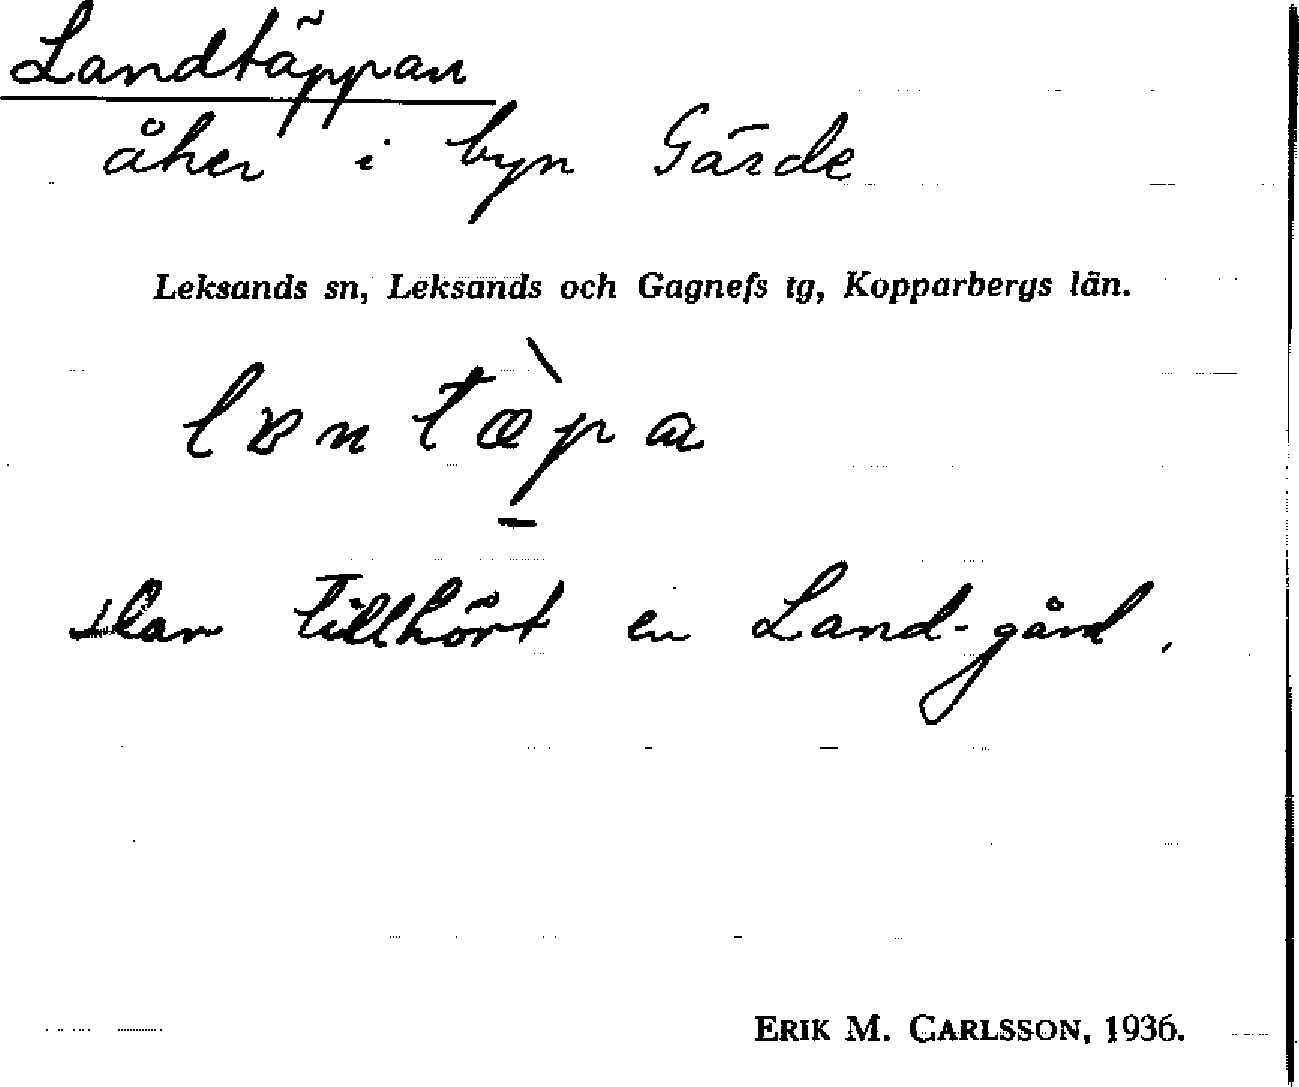 Landtäppan
åker i byn Gärde
Leksands sn, Leksands och Gagnefs tg, Kopparbergs län.
lɐntæ̀p̱a
Har tillhört en Land-gård.
ERIK M. CARLSSON, 1936.